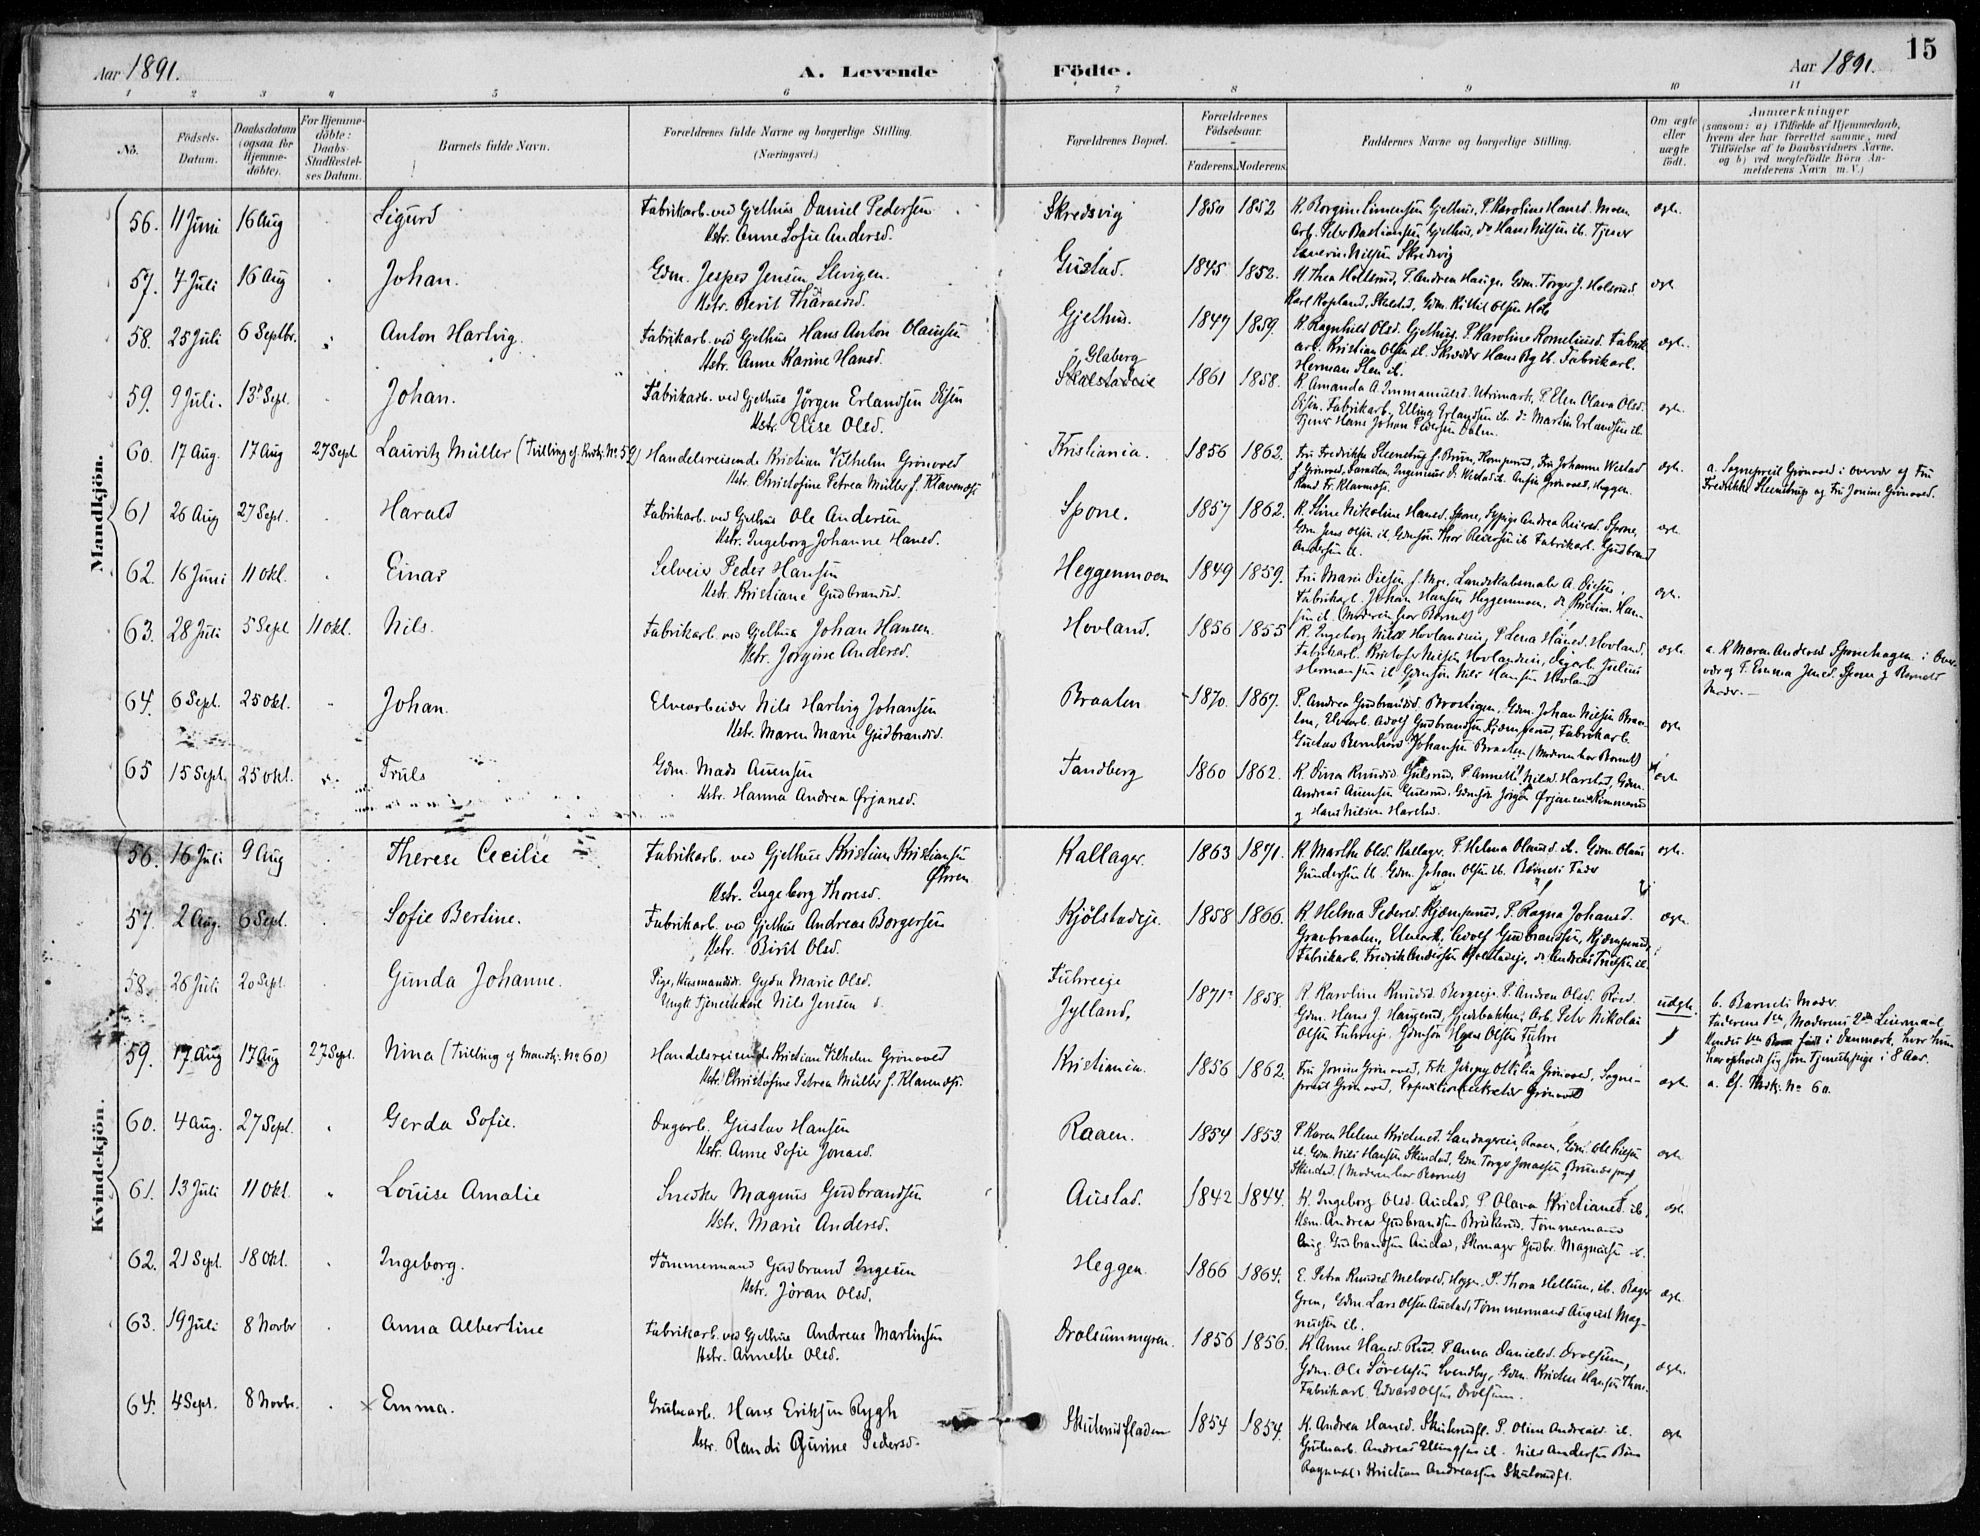 Aar 1891.
A. Levende Födte.
Aar 1891.
15
1 2 3 4 5 6 7 8 9 10 11
No.
Födsels-Datum.
Daabsdatum (ogsaa for Hjemme-döbte).
For Hjemme-döbte: Daabs-Stadfæstel-ses Datum.
Barnets fulde Navn.
Forældrenes fulde Navne og borgerlige Stilling.
(Næringsvei.)
Forældrenes Bopæl.
Forældrenes Födselsaar.
Faderens. Moderens.
Faddernes Navne og borgerlige Stilling.
Om ægte eller uægte födt.
Anmærkninger
(saasom: a) i Tilfælde af Hjemmedaab,
hvem der har forrettet samme, med
Tilföielse af to Daabsvidners Navne.
og b) ved uegtefödte Börn An-
melderens Navn m. V.)
Mandkjön.
56. 11 Juni 16 Aug Sigurd
Fabrikarb. ved Gjethus Daniel Pedersen
Hstr. Anne Sofie Andersd.
Skredsvig 1850 1852
K. Borgine Simensen Gjethus, P. Karoline Hansd. Moen
Arb. Peter Bastiansen Gjethus, do Hans Nilsen ib. Tjener
Severin Nilsen Skredsvig
ægte.
57. 7 Juli 16 Aug Johan.
Gdm. Jesper Jensen Slevigen.
Hstr. Berit Tharaldsd.
Gustad. 1845 1852.
Gdm. Kittil Olsen
ægte
58. 25 Juli 6 Septbr. Anton Hartvig.
Fabrikarb. ved Gjethus Hans Anton Olausen
Hstr. Anne Karine Hansd.
Gjethus. 1847 1859.
K. Ragnhild Olsd. Gjethus. P. Karoline Korneliusd. Fabrik-
arb. Kristian Olsen ib. Skrædder Hans By ib. Fabrikarb.
Herman Sten ib.
ægte.
59. 9 Juli. 13 Sept. Johan.
Fabrikarb. ved Gjethus Jörgen Erlandsen Disen
Hstr. Elise Olsd.
Glaberg
Skalstadeie 1861 1858.
K. Amanda A. Immanuelsd. Utrimark, P. Elen Olava Olsd.
Disen. Fabrikarb. Elling Erlandsen ib. do Martin Erlandsen ib.
Tjener Hans Johan Pedersen Dalen.
ægte.
60. 17 Aug. 17 Aug 27 Sept. Lauritz Müller (Tvilling cf. Kvdkj. No 59)
Handelsreisende Kristian Vilhelm Grönvold
Hstr. Christofine Petrea Müller f. Klavenæss
Kristiania 1856 1862.
Fru Fredrikke Steenstrup f. Bruun, Kongsrud, Fru Johanne Westad
f. Grönvold,
ægte.
a. Sogneprest Grönvold i Overvær af Fru
Fredrikke Steenstrup og Fru Jonine Grönvold.
61 26 Aug 27 Sept. Harald
Fabrikarb. ved Gjethus Ole Andersen
Hstr. Ingeborg Johanne Hansd.
Spone. 1857 1862.
K. Stine Nikoline Hansd. Spone, Sypige Andrea Reiersd. Spone,
Gdm. Jens Olsen ib. Gdmsön Thor Reiersen ib. Fabrikarb. Gudbrand
Andersen ib.
ægte.
62. 16 Juni 11 Okt. Einar
Selveier Peder Hansen
Hstr. Kristiane Gudbrandsd.
Heggenmoen 1849 1859.
Fru Marie Diesen f. Landskabsmaler A. Diesen,
Fabrikarb. Johan Hansen Heggenmoen, do Kristian Han-
sen ib. (Moderen har Barnet)
ægte.
63. 28 Juli 5 Sept 11 Okt. Nils.
Fabrikarb. ved Gjethus Johan Hansen
Hstr. Jörgine Andersd.
Hovland. 1856 1855
K. Ingeborg Nilsd. Hovlandseie, P. Lena Hansd. Hovland,
Fabrikarb. Kristofer Nilsen Hovlandseie, Dagarb. Julius
Hermansen ib. Gdmsön Nils Hansen Hovland
ægte.
a. K Maren Andersd. Sponehagen i Over-
vær og P. Emma Jensd. Spone og Barnets
Moder.
64. 6 Sept. 25 Okt. Johan.
Elvearbeider Nils Hartvig Johansen
Hstr. Maren Marie Gudbrandsd.
Braaten 1870. 1867.
P. Andrea Gudbrandsd. Brostigen, Gdm. Johan Nilsen Braa-
ten, Elvearb. Adolf Gudbrandsen Kjæmperud, Fabrikarb.
Gustav Bernhard Johansen Braaten (Moderen har Barnet)
ægte
65 15 Sept. 25 Okt. Truls
Gdm. Mads Auensen
Hstr. Hanna Andrea Ørjansd.
Tandberg 1860 1862.
K. Dina Knudsd. Gulsrud, P. Annette Nilsd. Harstad, Gdm.
Andreas Auensen Gulsrud, Gdmsön Jörgen Ørjansen
og Hans Nilsen Harstad.
ægte
Kvindekjön.
56. 16 Juli 9 Aug Therese Cecilie
Fabrikarb. ved Gjethus Kristian Kristiansen
Øhren
Hstr. Ingeborg Thoresd.
Kallager. 1863 1871.
K. Marthe Olsd. Kallager. P. Helma Olausd. ib. Gdm. Olaus
Gundersen ib. Gdm. Johan Olsen ib. Barnets Fader
ægte.
57. 2 Aug. 6 Sept. Sofie Bertine.
Fabrikarb. ved Gjethus Andreas Borgersen
Hstr. Birit Olsd.
Kjölstadeje. 1858 1866.
K. Helma Pedersd. Kjæmperud, P. Ragna Johansd.
Gravbraaten, Elvearb. Adolf Gudbrandsen, Kjæmperud,
Fabrikarb. Fredrik Andersen Kjölstadeje, do Andreas ib.
ægte.
58. 26 Juli 20 Sept. Gunda Johanne.
Pige, Husmandsdr. Gyda Marie Olsd.
Ungk. Tjenestekarl Nils Jensen
Fuhreeje
Jylland. 1871 1858.
K. Karoline Knudsd. Bergeeje. P. Andrea Olsd.
Gdm. Hans J. Haugerud, Gjedebakken, Arb. Peter Nikolai
Olsen Fuhreeje, Gdmsön Hans Olsen Fuhre
uægte.
b. Barnets Moder.
Faderens 1ste, Moderens 2det Leiermaal
Hendes 1ste Barn födt i Danmark, hvor hun
har opholdt sig som Tjenestepige i 8 Aar.
59. 17 Aug 17 Aug 27 Sept. Nina (Tvilling cf Mandkj. No 60)
Handelsreisende Kristian Vilhelm Grönvold
Hstr. Christofine Petrea Müller f. Klavenæss.
Kristiania. 1856 1862.
Fru Jonine Grönvold, Frk. Jenny Ottilia Grönvold, Sogne-
prest Grönvold, Expeditionssekretær Grönvold
ægte.
a. Cf. Mdkj. No 60.
60. 4 Aug. 27 Sept. Gerda Sofie.
Dagarb. Gustav Hansen
Hstr. Anne Sofie Jonasd.
Raaen. 1854 1853
P. Karen Helene Raaen, Gdm. Ole
ib. Gdm. Nils Hansen Skinstad, Gdm. Torger Jonassen
Skinstad. (Moderen har Barnet)
ægte.
61. 13 Juli 11 Okt. Louise Amalie
Snedker Magnus Gudbrandsen
Hstr. Marie Andersd.
Austad. 1842 1844.
K. Ingeborg Olsd. Austad, P. Olava Kristiansd. ib.
Hsm. Andreas Gudbrandsen Briskerud, Tømmermand
Gudbrandsen Austad, Skomager Gudbr. Magnussen ib.
ægte.
62. 21 Sept. 18 Okt. Ingeborg.
Tömmermand Gudbrand Ingesen
Hstr. Jöran Olsd.
Heggen 1866 1864.
E. Petra Knudsd. Melvold, Heggen. P. Thora Hellum, ib.
Gren, Gdm. Lars Olsen Austad, Tömmermand August Mag-
nussen ib.
ægte.
63. 19 Juli 8 Novbr Anna Albertine
Fabrikarb. ved Gjethus Andreas Martinsen
Hstr. Annette Olsd.
Drolsummyren. 1856 1856.
K. Anne Hansd. Rud. P. Anna Danielsd. Drolsum,
Gdm. Ole Sørensen Svendby, Gdm. Kristen Hansen
Fabrikarb. Edvard Olsen Drolsum.
ægte.
64. 4 Sept. 8 Novbr. Emma.
Grubearb. Hans Eriksen Rygh
Hstr. Randi Gurine Pedersd.
Skuterudfladen 1854 1854.
K. Andrea Hansd. Skuterudfl. P. Oline Andreasd. ib.
Grubearb. Andreas Ellingsen ib. Nils Andersen
Kristian Andreassen Skuterudfl.
ægte